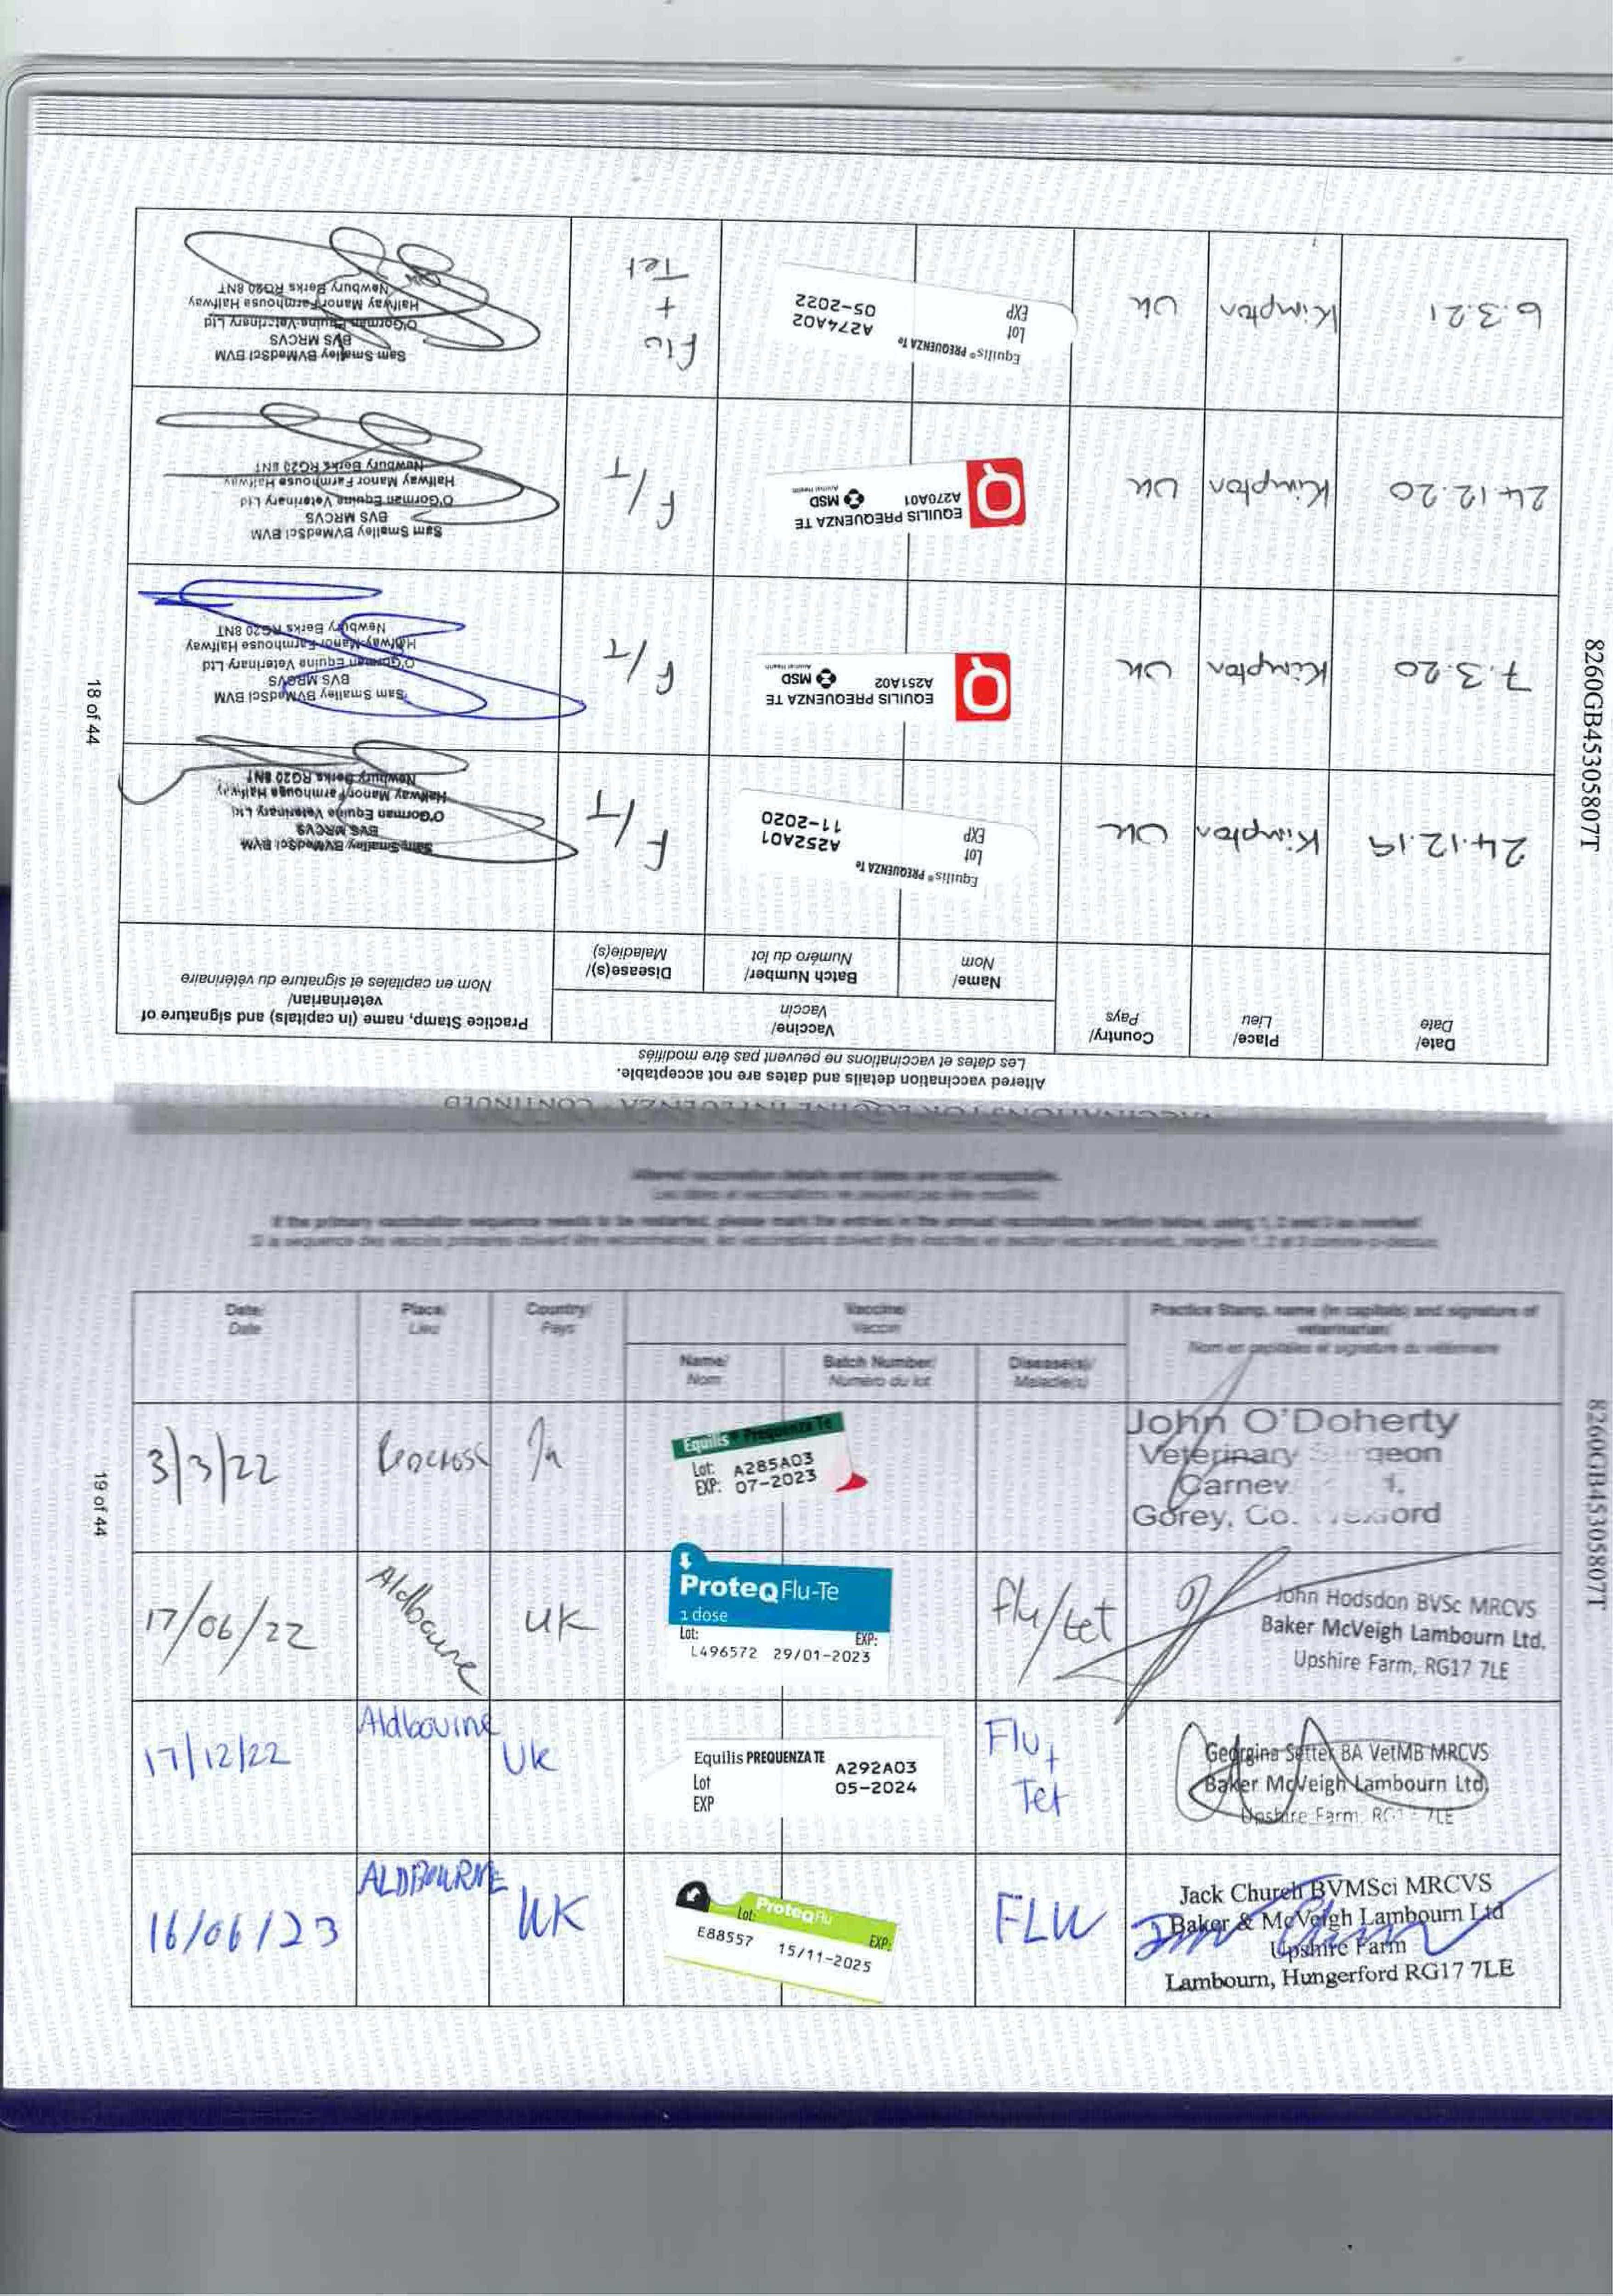 VACCINATIONS FOR EQUINE INFLUENZA - CONTINUED
Altered vaccination details and dates are not acceptable.
Les dates et vaccinations ne peuvent pas être modifiés
Date/
Date
Place/
Lieu
Country/
Pays
Vaccine/
Vaccin
Name/
Nom
Batch Number/
Numéro du lot
Disease(s)/
Maladie(s)
Practice Stamp, name (in capitals) and signature of
veterinarian/
Nom en capitales et signature du vétérinaire
24.12.19
Kimpton
UK
Equilis® PREQUENZA Te
Lot A252A01
EXP 11-2020
F/T
Sam Smalley BVMedSci BVM
BVS MRCVS
O'Gorman Equine Veterinary Ltd
Halfway Manor Farmhouse Halfway
Newbury Berks RG20 8NT
7.3.20
Kimpton
UK
EQUILIS PREQUENZA TE
A251A02 MSD
Animal Health
F/T
Sam Smalley BVMedSci BVM
BVS MRCVS
O'Gorman Equine Veterinary Ltd
Halfway Manor Farmhouse Halfway
Newbury Berks RG20 8NT
24.12.20
Kimpton
UK
EQUILIS PREQUENZA TE
A270A01 MSD
Animal Health
F/T
Sam Smalley BVMedSci BVM
BVS MRCVS
O'Gorman Equine Veterinary Ltd
Halfway Manor Farmhouse Halfway
Newbury Berks RG20 8NT
6.3.21
Kimpton
UK
Equilis® PREQUENZA Te
Lot A274A02
EXP 05-2022
Flu
+
Tet
Sam Smalley BVMedSci BVM
BVS MRCVS
O'Gorman Equine Veterinary Ltd
Halfway Manor Farmhouse Halfway
Newbury Berks RG20 8NT
18 of 44
8260GB45305807T
Altered vaccination details and dates are not acceptable.
Les dates et vaccinations ne peuvent pas être modifiés
If the primary vaccination sequence needs to be restarted, please mark the entries in the annual vaccinations section below, using 1, 2 and 3 as needed
Date/
Date
Place/
Lieu
Country/
Pays
Vaccine/
Vaccin
Name/
Nom
Batch Number/
Numéro du lot
Disease(s)/
Maladie(s)
Practice Stamp, name (in capitals) and signature of
veterinarian/
Nom en capitales et signature du vétérinaire
3/3/22
Equilis® Prequenza Te
Lot: A285A03
EXP: 07-2023
John O'Doherty
Veterinary Surgeon
Gorey, Co. Wexford
17/06/22
Aldbourne
UK
ProteqFlu-Te
1 dose
Lot: EXP:
L496572 29/01-2023
flu/tet
John Hodsdon BVSc MRCVS
Baker McVeigh Lambourn Ltd.
Upshire Farm, RG17 7LE
17/12/22
Aldbourne
UK
Equilis PREQUENZA TE
Lot A292A03
EXP 05-2024
Flu +
Tet
Georgina Setter BA VetMB MRCVS
Baker McVeigh Lambourn Ltd
Upshire Farm, RG17 7LE
16/06/23
ALDBOURNE
UK
ProteqFlu
Lot: EXP:
E88557 15/11-2025
FLU
Jack Church BVMSci MRCVS
Baker & McVeigh Lambourn Ltd
Upshire Farm
Lambourn, Hungerford RG17 7LE
19 of 44
8260GB45305807T